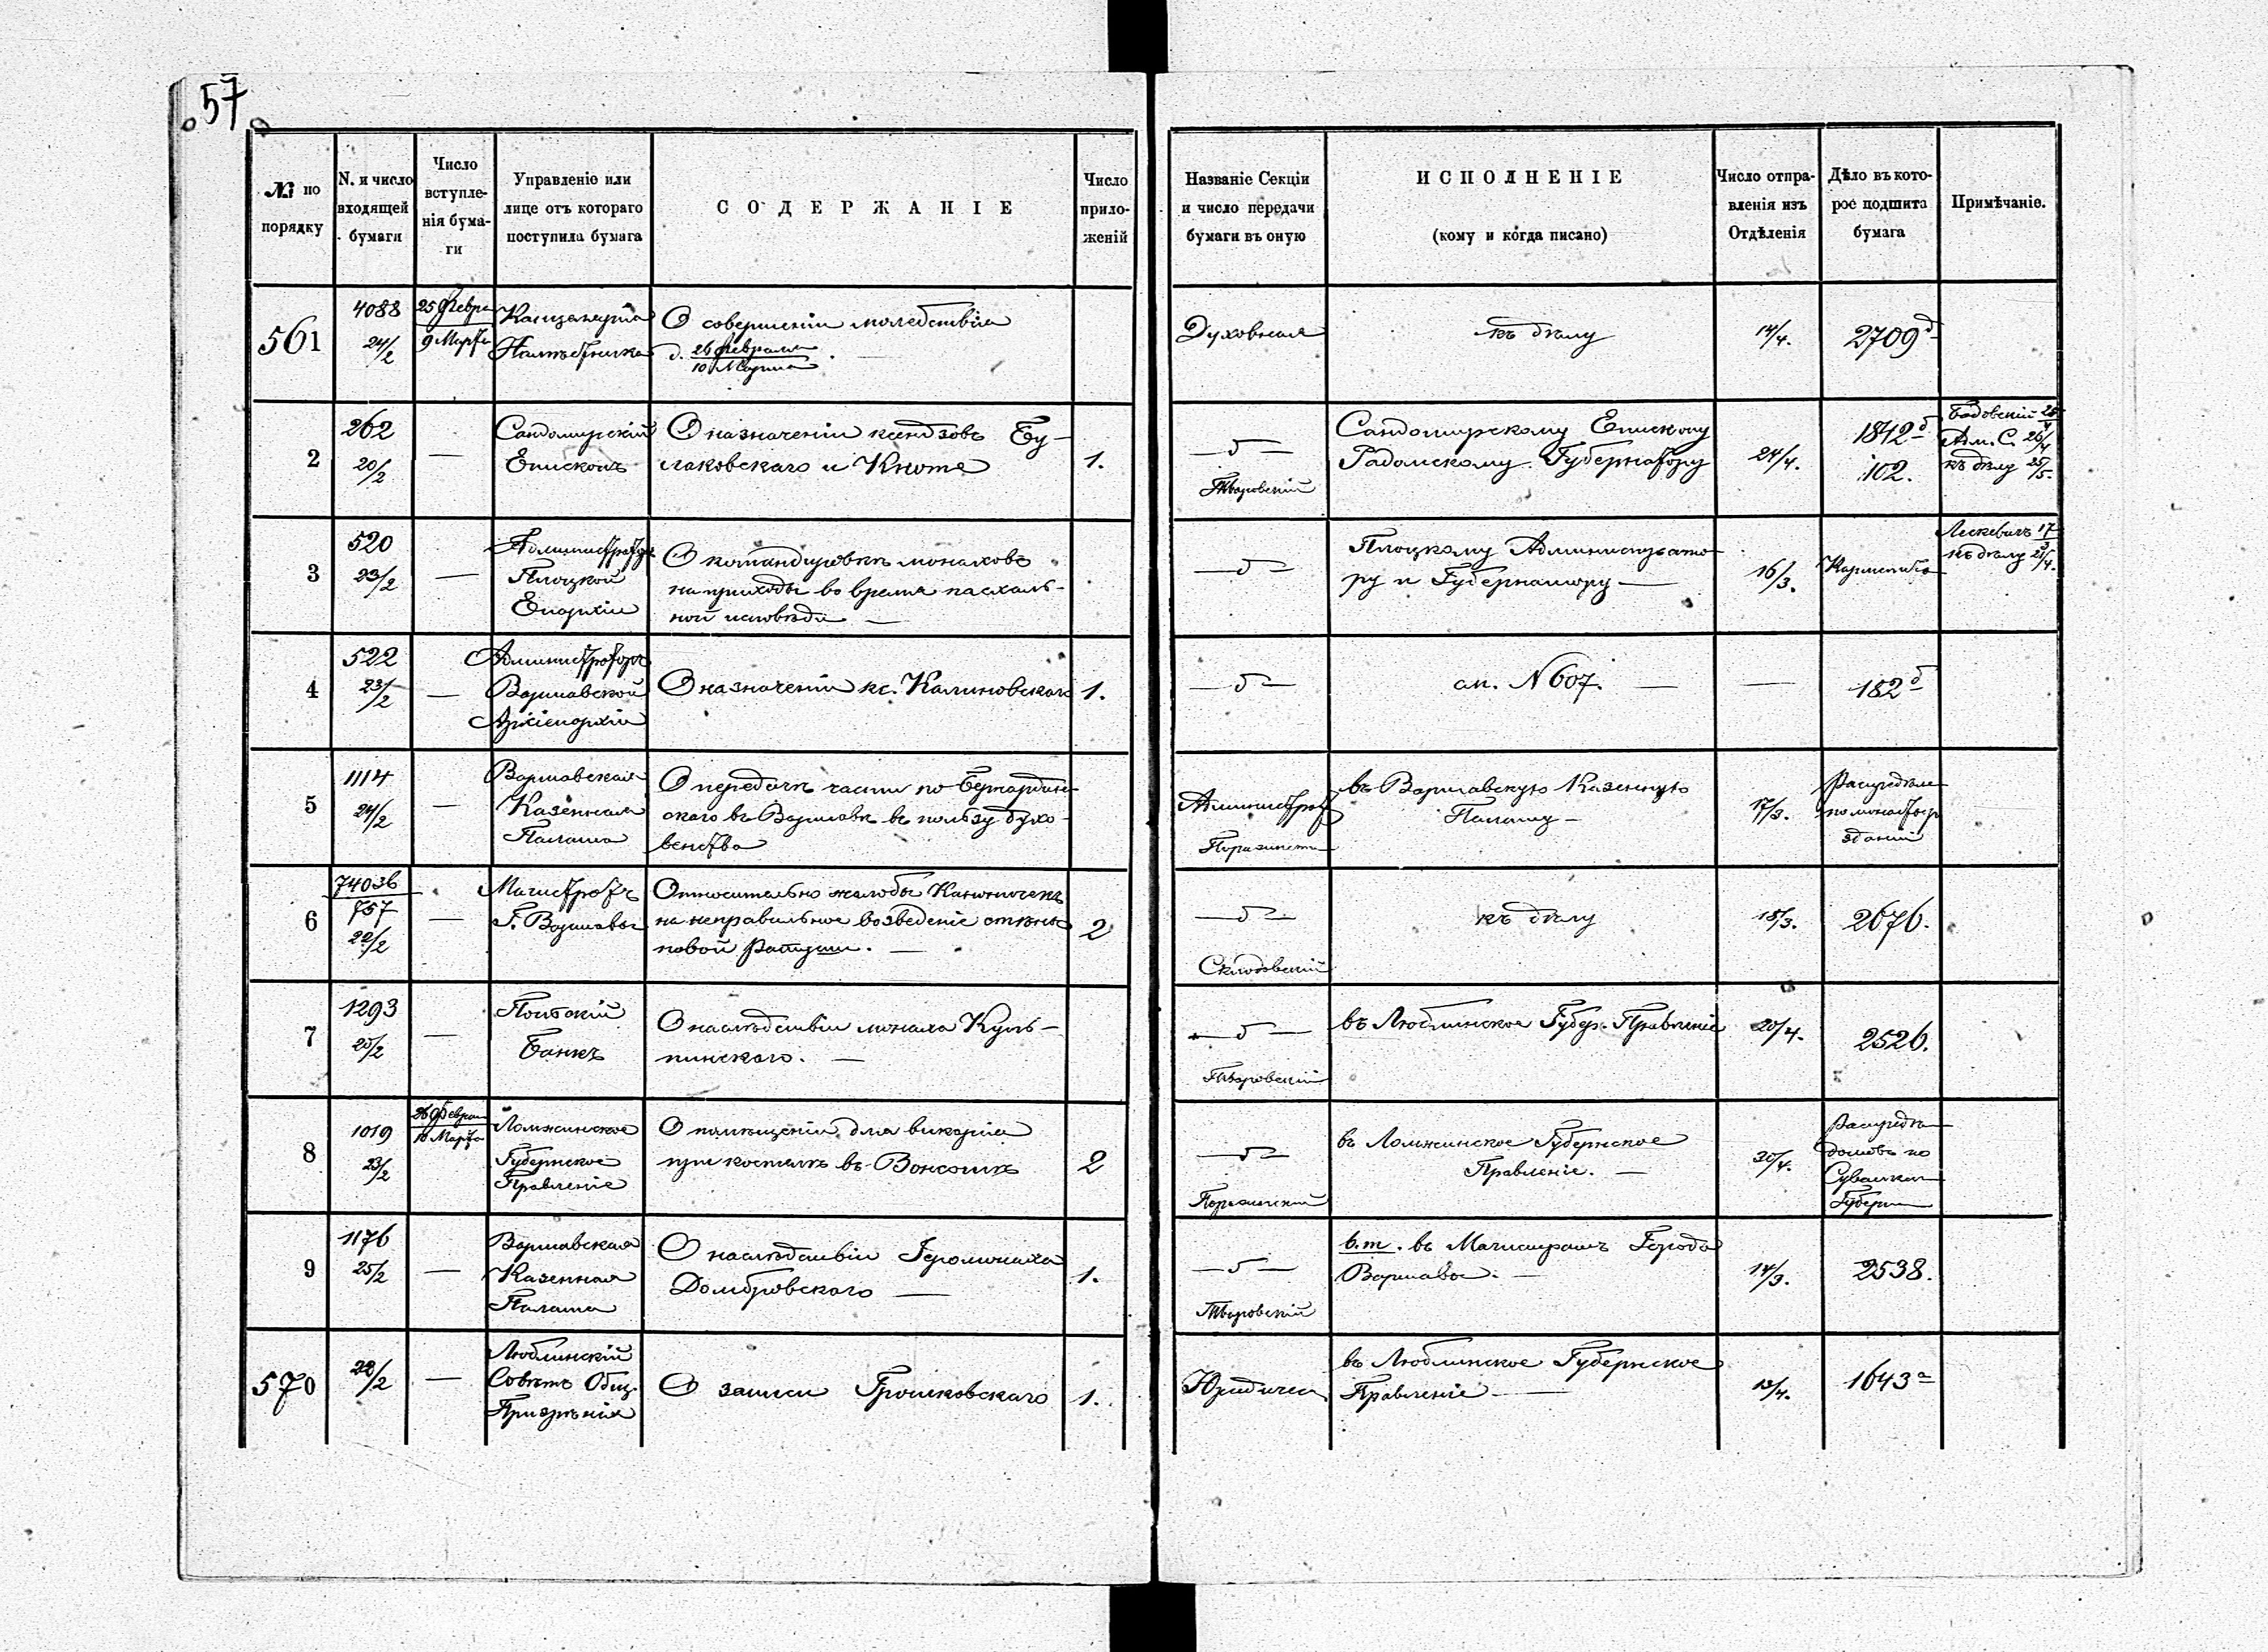 57
№ по порядку
N. и число входящей бумаги
Число вступле-нія бума-ги
Управленіе или лице отъ котораго поступила бумага
СОДЕРЖАНІЕ
Число прило-женій
Названіе Секціи и число передачи бумаги въ оную
ИСПОЛНЕНІЕ
(кому и когда писано)
Число отпра-вленія изъ Отдѣленія
Дѣло въ кото-рое подшита бумага
Примѣчаніе.
561
4088
24/2
25 Февра
9 Марта
Канцелярія
Намѣстника
О совершеніи молебствія
д. 26 Февраля
10 Марта
Духовная
къ дѣлу
14/4.
2709 д
2
262
20/2
—
Сандомирскій
Епископъ
О назначеніи ксендзовъ Бу-
лаковскаго и Кноте
1.
— д —
Тваровскій
Сандомирскому Епископу
Радомскому Губернатору
24/4.
1842 д
102.
Адм. С. 26/4
къ дѣлу 25/5.
3
520
23/2
—
Администраторъ
Плоцкой
Епархіи
О командировкѣ монаховъ
на приходы во время пасхаль-
ной исповѣди —
— д —
Плоцкому Администрато-
ру и Губернатору —
16/3.
Лескевичъ 17/3
къ дѣлу 21/4.
4
522
23/2
—
Администраторъ
Варшавской
Архіепархіи
О назначеніи кс. Калиновскаго
1.
— д —
см. N 607. —
—
182 д
5
1114
24/2
—
Варшавская
Казенная
Палата
О передачѣ части по Бернардин-
скаго въ Варшавѣ въ пользу духо-
венства
Администрат
въ Варшавскую Казенную
Палату —
17/3.
Распредѣле
по монастыр
зданій
6
74036
757
22/2
—
Магистратъ
Г. Варшавы
Относительно жалобы Каноничекъ
на неправильное возведеніе стѣны
новой Ратуши. —
2
— д —
Склодовскій
къ дѣлу
18/3.
2676.
7
1293
25/2
—
Польскій
Банкъ
О наслѣдствіи монаха Куль-
пинскаго. —
— д —
Тваровскій
въ Люблинское Губер. Правленіе
20/4.
2526.
8
1019
23/2
26 Феврал
10 Марта
Ломжинское
Губернское
Правленіе
О помѣщеніи для викарія
при костелѣ въ Вонсошѣ
2
— д —
въ Ломжинское Губернское
Правленіе. —
30/4.
Распредѣ
домовъ по
Сувалкск
Губерн
9
1176
25/2
—
Варшавская
Казенная
Палата
О наслѣдствіи Іеромонаха
Домбровскаго —
1.
— д —
Тваровскій
в. т. въ Магистратъ Города
Варшавы. —
14/3.
2538.
570
22/2
—
Люблинскій
Совѣтъ Общ.
Призрѣнія
О записи Грошковскаго
1.
Юридичес
въ Люблинское Губернское
Правленіе —
13/4.
1643 а